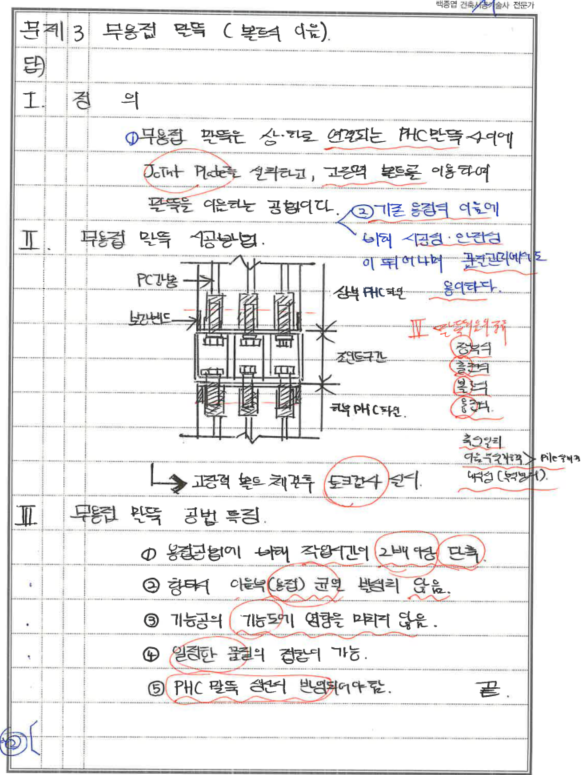 백종엽 건축시공기술사 전문가
문제 3 무용접 말뚝 (볼트식 이음).
답)
I. 정 의
① 무용접 말뚝은 상·하로 연결되는 PHC말뚝 사이에
Joint Plate를 설치하고, 고장력 볼트를 이용하여
말뚝을 이음하는 공법이다.
② 기존 용접식 이음에
비해 시공성·안전성
이 뛰어나며 품질관리에도
용이하다.
II. 무용접 말뚝 시공방법.
PC강봉
보강밴드
상부 PHC파일
조인트구간
하부 PHC파일
IV 말뚝이음의 종류
장부식
충전식
볼트식
용접식
이음부
> Pile
→ 고장력 볼트 체결후 토크검사 실시.
III 무용접 말뚝 공법 특징.
① 용접공법에 비해 작업시간이 2배 이상 단축.
② 항타시 이음부(용접) 균열 발생되 않음.
③ 기능공의 기능도가 영향을 미치지 않음.
④ 일정한 품질의 접합이 가능.
⑤ PHC 말뚝 생산시 반영되어야 함.
끝.